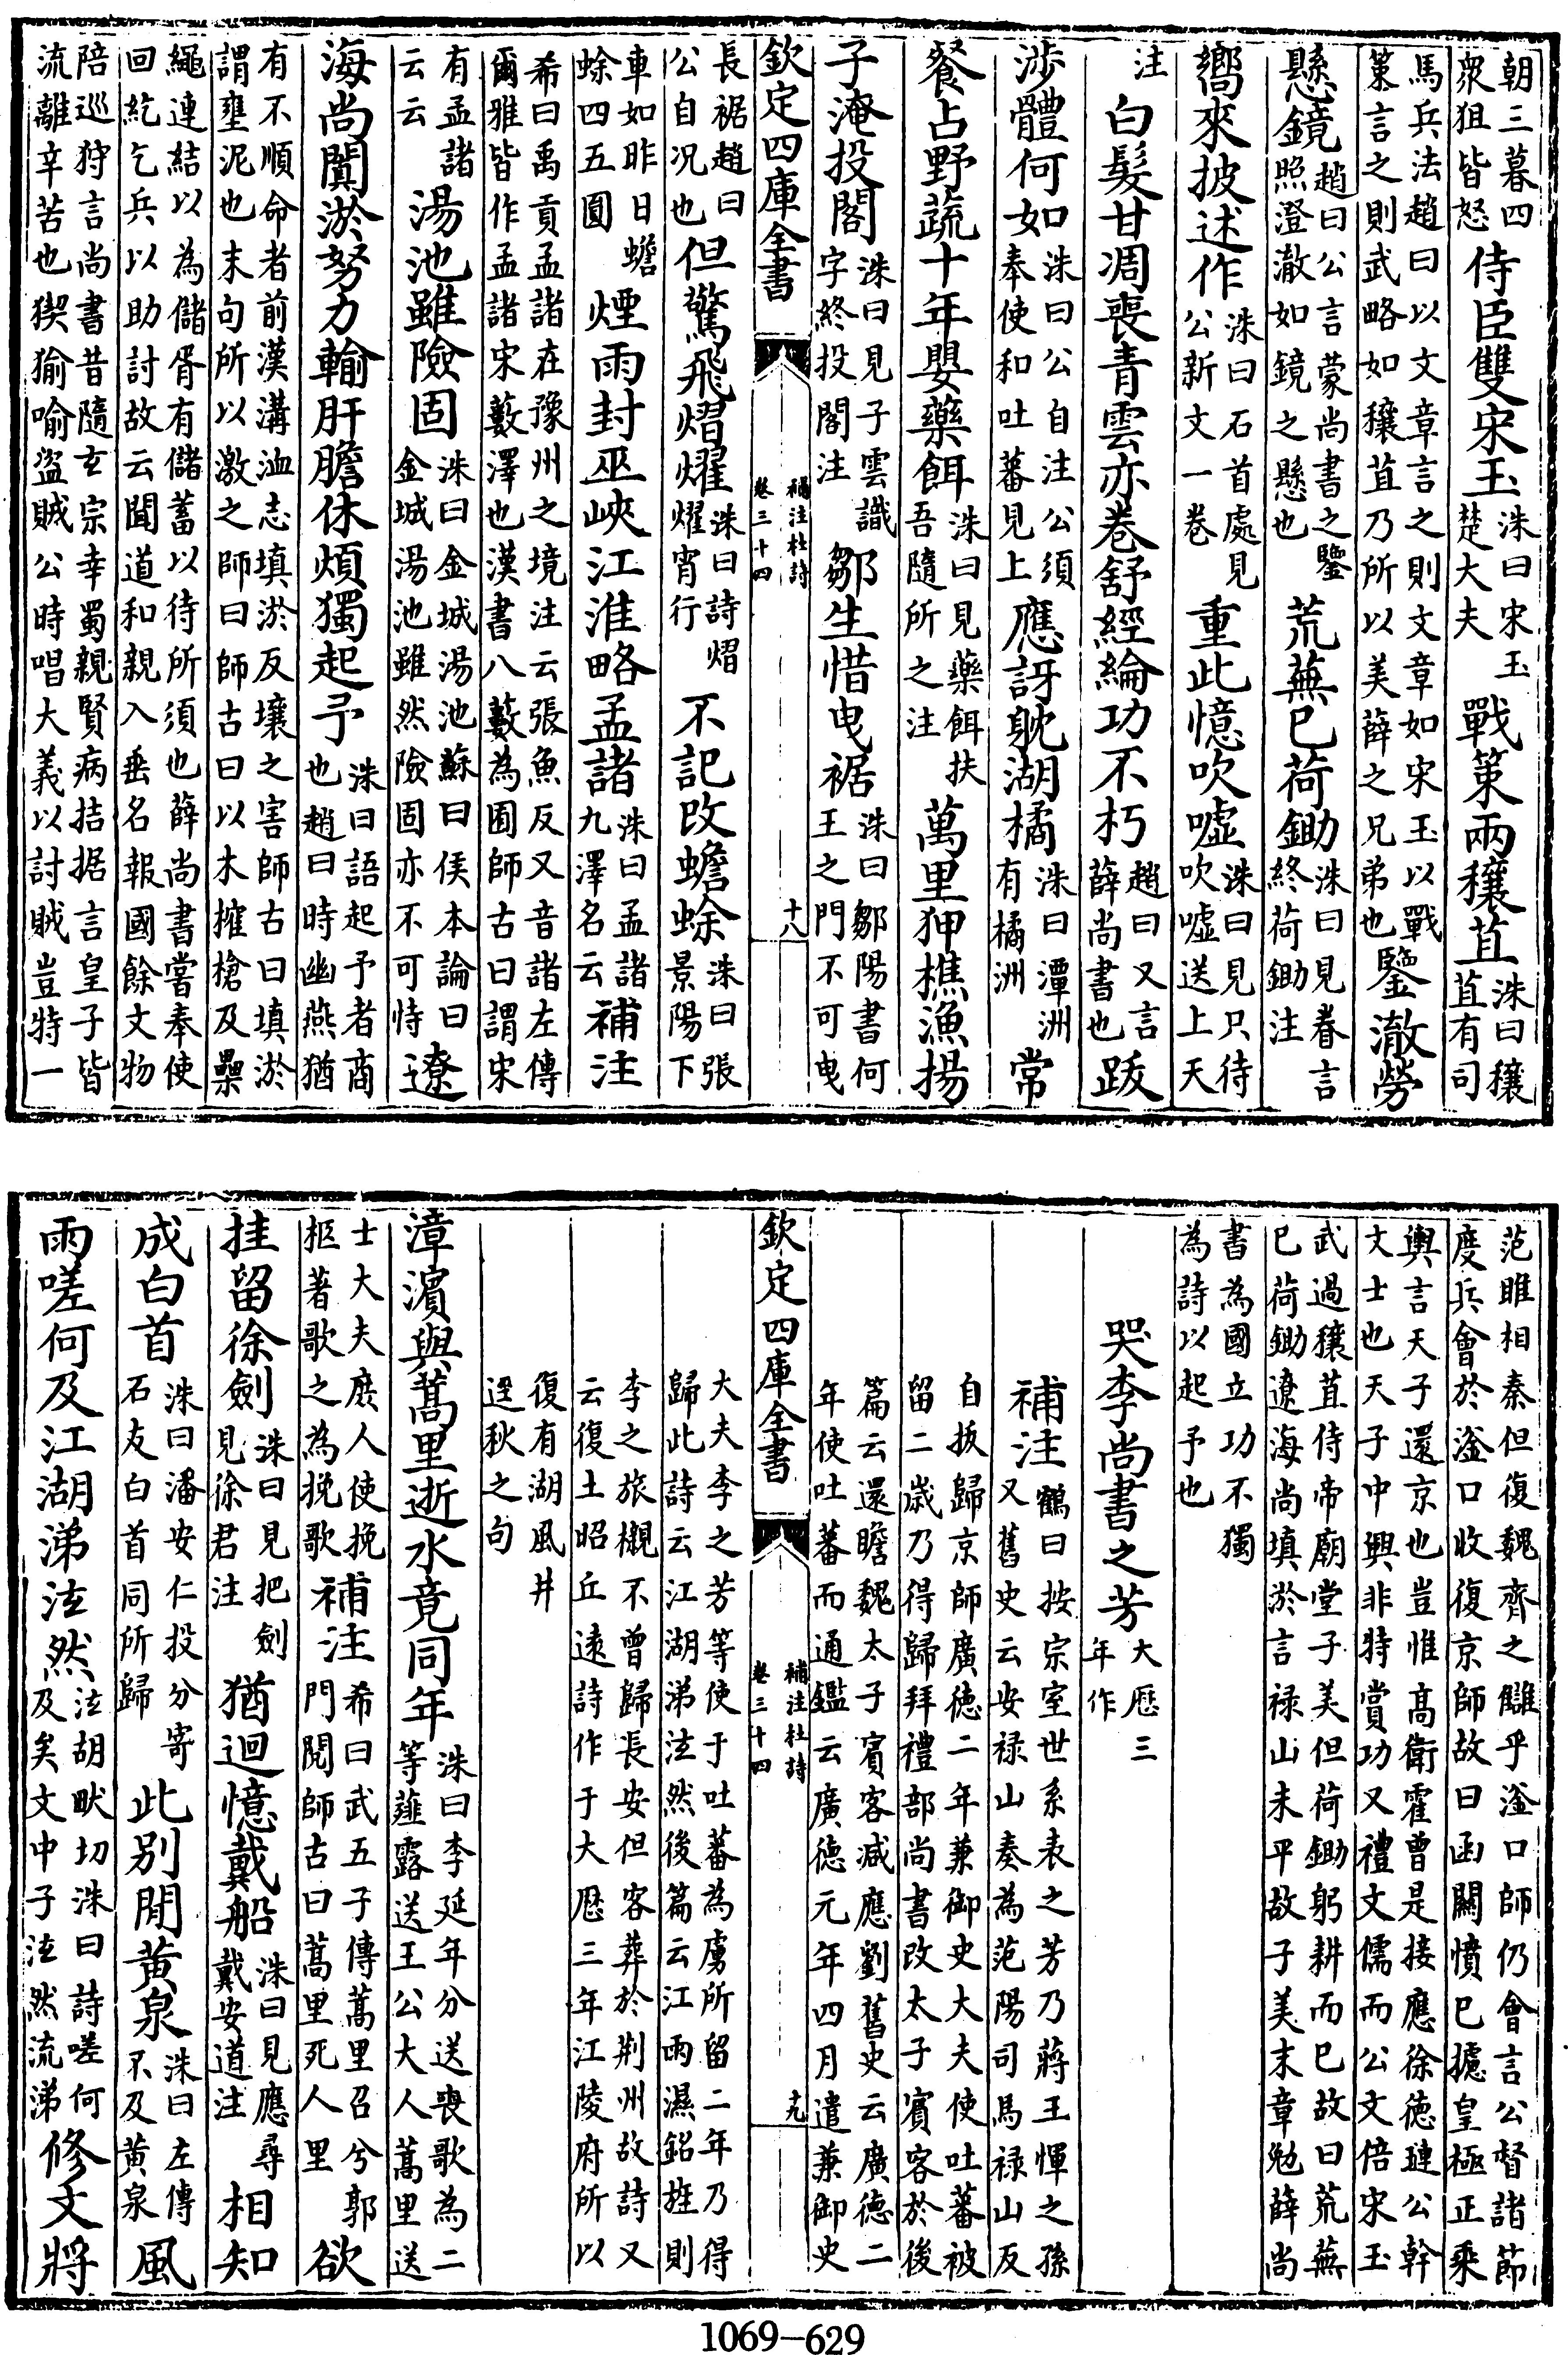 朝三暮四衆狙皆怒侍臣雙宋玉洙曰宋玉楚大夫戰策兩穰苴洙曰穰苴有司
馬兵法趙曰以文章言之則文章如宋玉以戰策言之則武略如穰苴乃所以美薛之兄弟也鑒澈勞
懸鏡趙曰公言蒙尚書之鑒照澄澈如鏡之懸也荒蕪已荷鋤洙曰見眷言終荷鋤注
嚮來披述作洙曰石首處見公新文一卷重此憶吹噓洙曰見只待吹噓送上天
注白髮甘凋喪青雲亦卷舒經綸功不朽趙曰又言薛尚書也跋
涉體何如洙曰公自注公須奉使和吐蕃見上應訝躭湖橘洙曰潭洲有橘洲常
餐占野蔬十年嬰藥餌洙曰見藥餌扶吾隨所之注萬里狎樵漁揚
子淹投閣洙曰見子雲識字終投閣注鄒生惜曳裾洙曰鄒陽書何王之門不可曳
欽定四庫全書 補注杜詩卷三十四 十八
長裾趙曰公自况也但驚飛熠燿洙曰詩熠燿宵行不記改蟾蜍洙曰張景陽下
車如昨日蟾蜍四五圓煙雨封巫峽江淮略孟諸洙曰孟諸九澤名云補注
希曰禹貢孟諸在豫州之境注云張魚反又音諸左傳爾雅皆作孟諸宋藪澤也漢書八藪為圃師古曰謂宋
有孟諸云云湯池雖險固洙曰金城湯池蘇曰侯本論曰金城湯池雖然險固亦不可恃遼
海尚闐淤努力輸肝膽休煩獨起予洙曰語起予者商也趙曰時幽燕猶
有不順命者前漢溝洫志填淤反壤之害師古曰填淤謂壅泥也末句所以激之師曰師古曰以木擁槍及纍
繩連結以為儲胥有儲蓄以待所須也薛尚書嘗奉使回紇乞兵以助討故云聞道和親入垂名報國餘文物
陪巡狩言尚書昔隨玄宗幸蜀親賢病拮据言皇子皆流離辛苦也猰㺄喻盜賊公時唱大義以討賊豈特一
范雎相秦但復魏齊之讎乎滏口師仍會言公督諸節度兵會於滏口收復京師故曰函關憤已攄皇極正乘
輿言天子還京也豈惟高衛霍曾是接應徐德璉公幹文士也天子中興非特賞功又禮文儒而公文倍宋玉
武過穰苴侍帝廟堂子美但荷鋤躬耕而已故曰荒蕪已荷鋤遼海尚填淤言禄山未平故子美末章勉薛尚
書為國立功不獨為詩以起予也
哭李尚書之芳大厯三年作
補注鶴曰按宗室世系表之芳乃蔣王惲之孫又舊史云安禄山奏為范陽司馬禄山反
自拔歸京師廣德二年兼御史大夫使吐蕃被留二歲乃得歸拜禮部尚書改太子賓客於後
篇云還瞻魏太子賓客减應劉舊史云廣德二年使吐蕃而通鑑云廣德元年四月遣兼御史
欽定四庫全書 補注杜詩卷三十四 十九
大夫李之芳等使于吐蕃為虜所留二年乃得歸此詩云江湖涕泫然後篇云江雨濕銘旌則
李之旅櫬不曾歸長安但客葬於荆州故詩又云復土昭丘遠詩作于大厯三年江陵府所以
復有湖風井逕秋之句
漳濱與蒿里逝水竟同年洙曰李延年分送喪歌為二等薤露送王公大人蒿里送
士大夫庶人使挽柩著歌之為挽歌補注希曰武五子傳蒿里召兮郭門閱師古曰蒿里死人里欲
挂留徐劍洙曰見把劍見徐君注猶迴憶戴船洙曰見應尋戴安道注相知
成白首洙曰潘安仁投分寄石友白首同所歸此别閒黄泉洙曰左傳不及黄泉風
雨嗟何及江湖涕泫然泫胡畎切洙曰詩嗟何及矣文中子泫然流涕修文將
1069-629